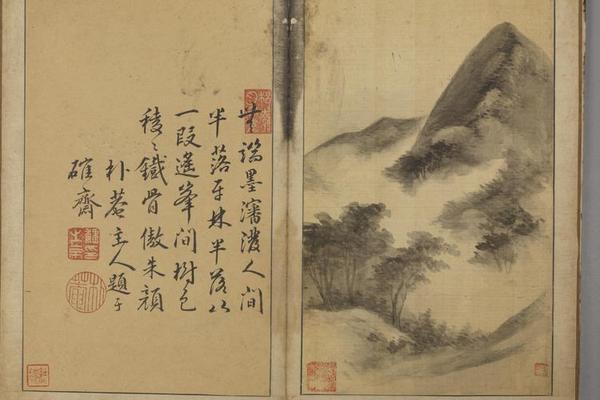 無端墨瀋潑人間
半落平林半落山
一段遙峯間樹色
稜〻鐵骨傲朱顏
朴菴主人題于
確齋